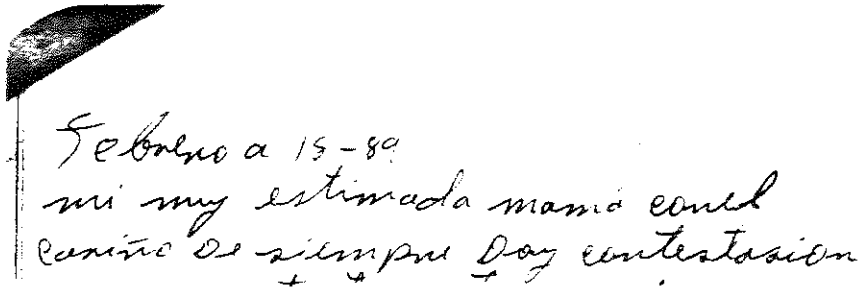 Febrero a 15-89
mi muy estimada mamá conel
cariño De siempre Doy contestasion